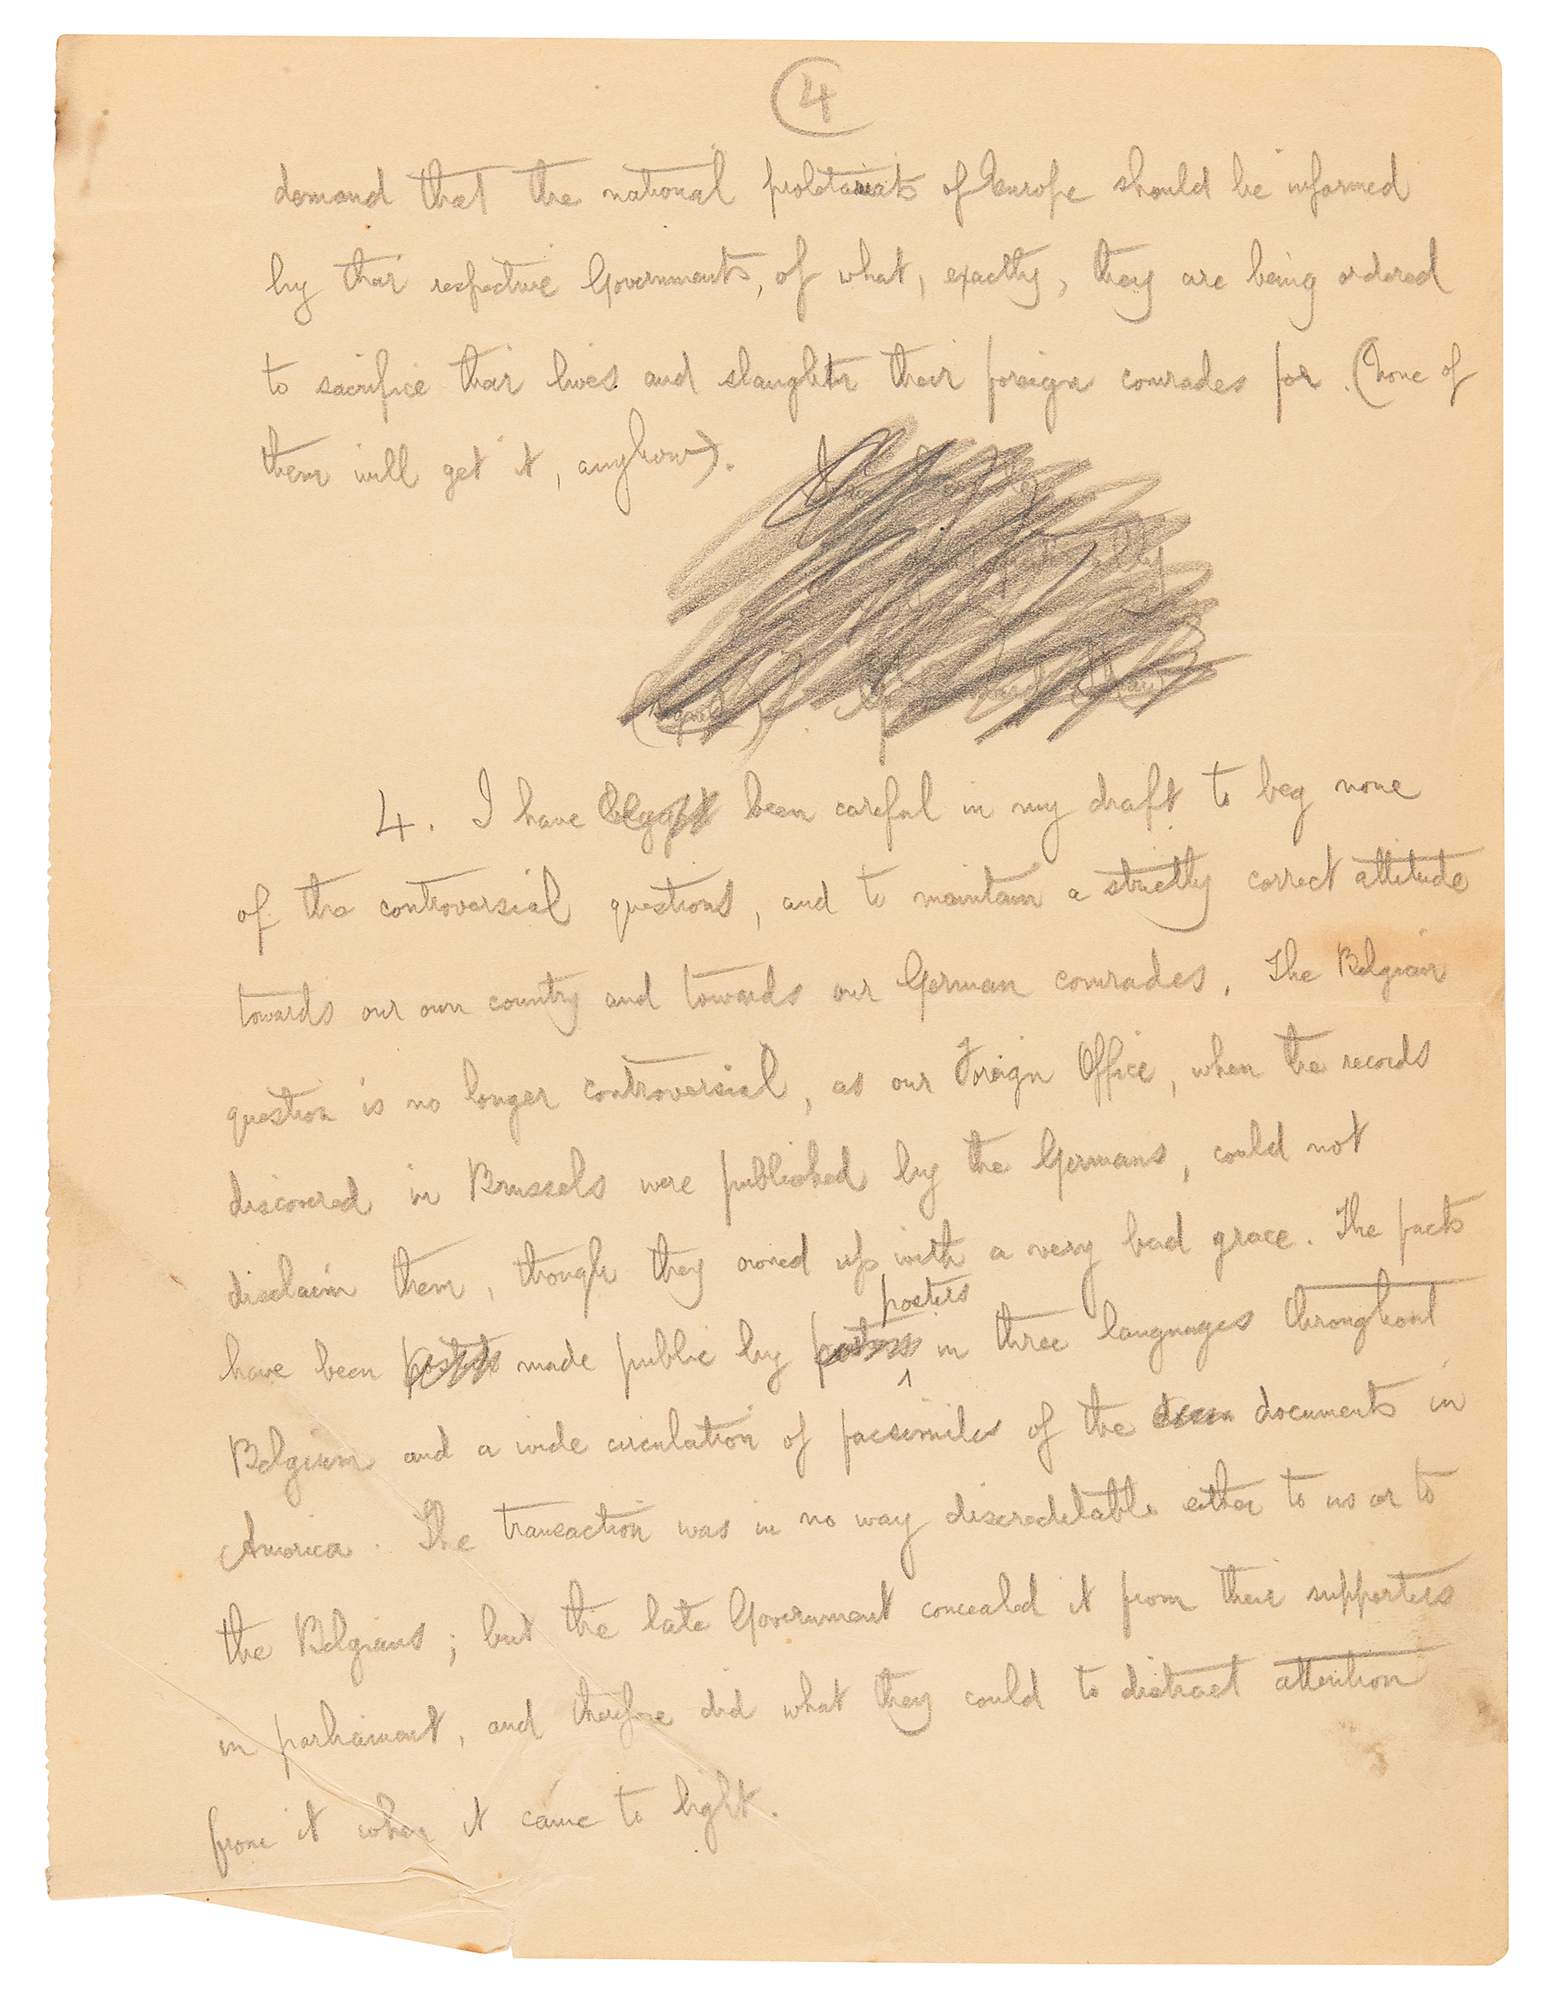 4
demand that the national proletariats of Europe should be informed
by their respective Governments, of what, exactly, they are being ordered
to sacrifice their lives and slaughter their foreign comrades for. (None of
them will get it, anyhow).
4. I have been careful in my draft to beg none
of the controversial questions, and to maintain a strictly correct attitude
towards our own country and towards our German comrades. The Belgian
question is no longer controversial, as our Foreign Office, when the records
discovered in Brussels were published by the Germans, could not
disclaim them, though they owned up with a very bad grace. The facts
posters
have been made public by in three languages throughout
Belgium and a wide circulation of facsimiles of the documents in
America. The transaction was in no way discreditable either to us or to
the Belgians; but the late Government concealed it from their supporters
in parliament, and therefore did what they could to distract attention
from it when it came to light.